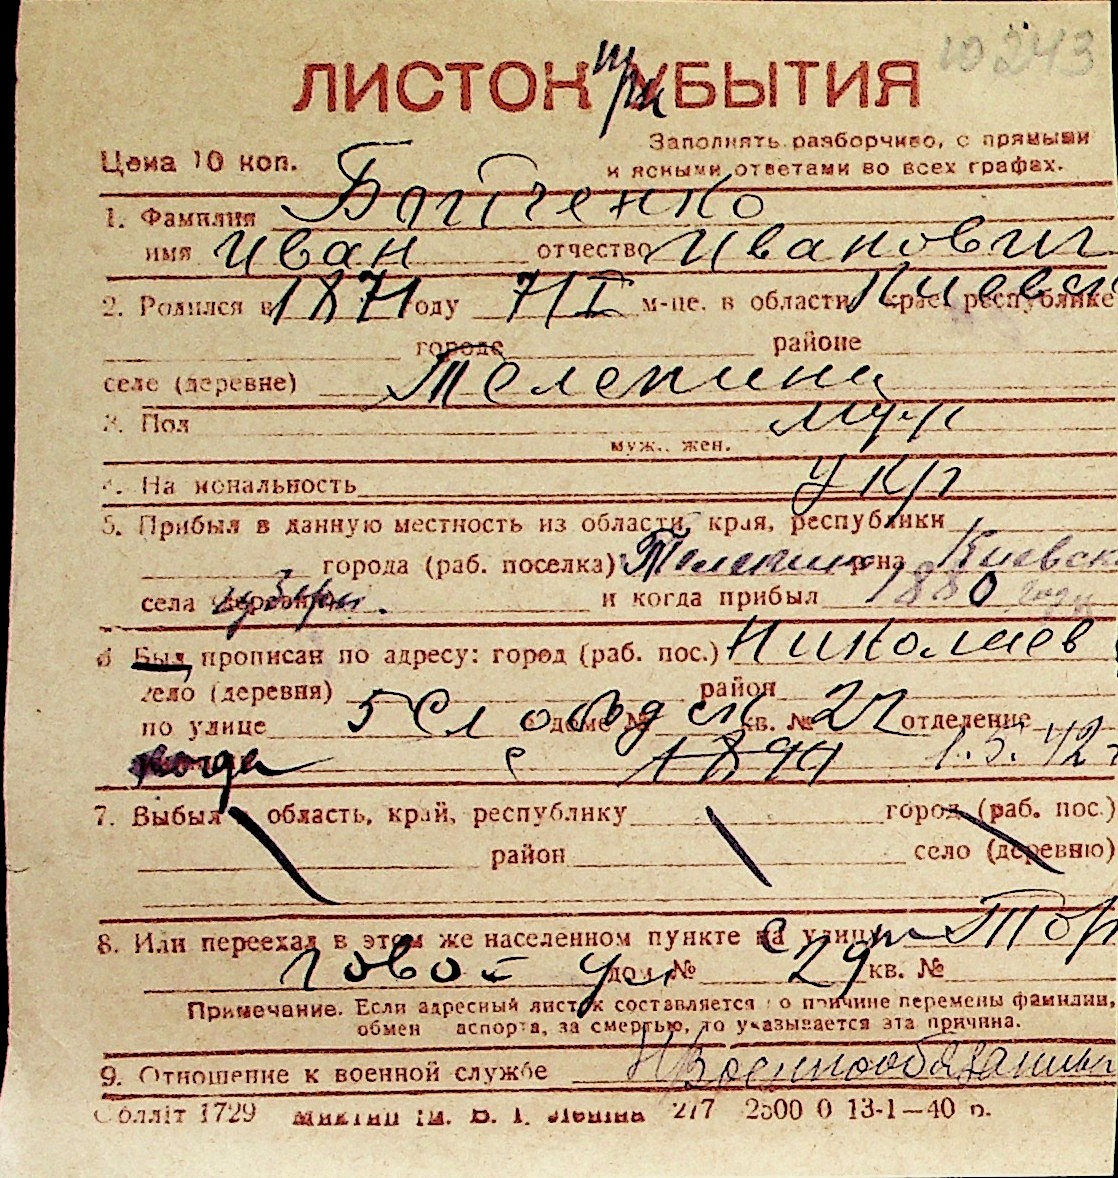 10243
ЛИСТОК при БЫТИЯ
Цена 10 коп.
Заполнять разборчиво, с прямыми
и ясными ответами во всех графах.
1. Фамилия
имя Иван отчество Иванович
2. Родился в 1871 году м-це. в области, крае, республике Киевск
городе районе
селе (деревне) Телепина
3. Пол муж
муж., жен.
4. Национальность укр
5. Прибыл в данную местность из области, края, республики
города (раб. поселка) рна Киевск
села и когда прибыл 1880 году
6 Был прописан по адресу: город (раб. пос.) Николаев
село (деревня) район
по улице 5 Слободск доме № кв. № 22 отделение
когда с 1899 1.5.42
7. Выбыл область, край, республику город (раб. пос.)
район село (деревню)
8. Или переехал в этом же населенном пункте на улицу с Тор
говой ул дом № 29 кв. №
Примечание. Если адресный листок составляется по причине перемены фамилии,
обмен паспорта, за смертью, то указывается эта причина.
9. Отношение к военной службе Н/Военнообязанный
Обллiт 1729 iм. В. I. Ленiна 217 2500 0 13-1—40 р.